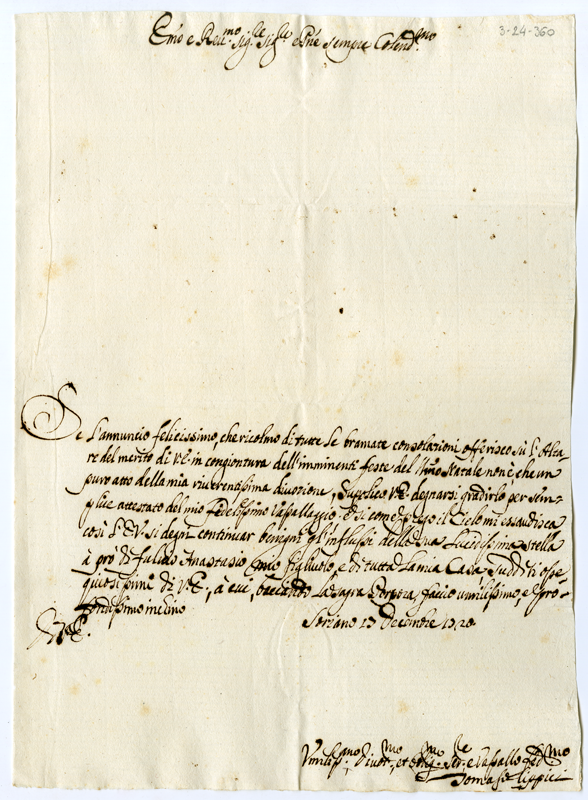 3-24-360
Emō e Reu.mo Sig.re Sig.re e Pñe sempre Colend.mo
Se l'annuncio felicissimo, che ricolmo di tutte le bramate consolazioni offerisco sù l'Alta
re del merito di V.E. in congiontura dell'imminenti feste del Natale non è che un
puro atto della mia riverentissima divozione, supplico V.E. degnarsi gradirlo per sem-
plice attestato del mio fedelissimo Vassallaggio e si come prego il Cielo mi essaudisca
così l'E.V. si degni continuar benigni gl'influssi della sua Lucidissima stella
à prò di Anastasio mio figliuolo, e di tutta la mia Casa sudditi osse-
quiosissimi di V.E., à cui, baciando la sagra Porpora, faccio umilissimo, e pro-
fondissimo inclino
D.V.E.
Soriano 13 Decembre 1720
Umilis.mo Divot.mo, et Oblig.mo Ser.re e Vassallo fed.mo
Tomaso